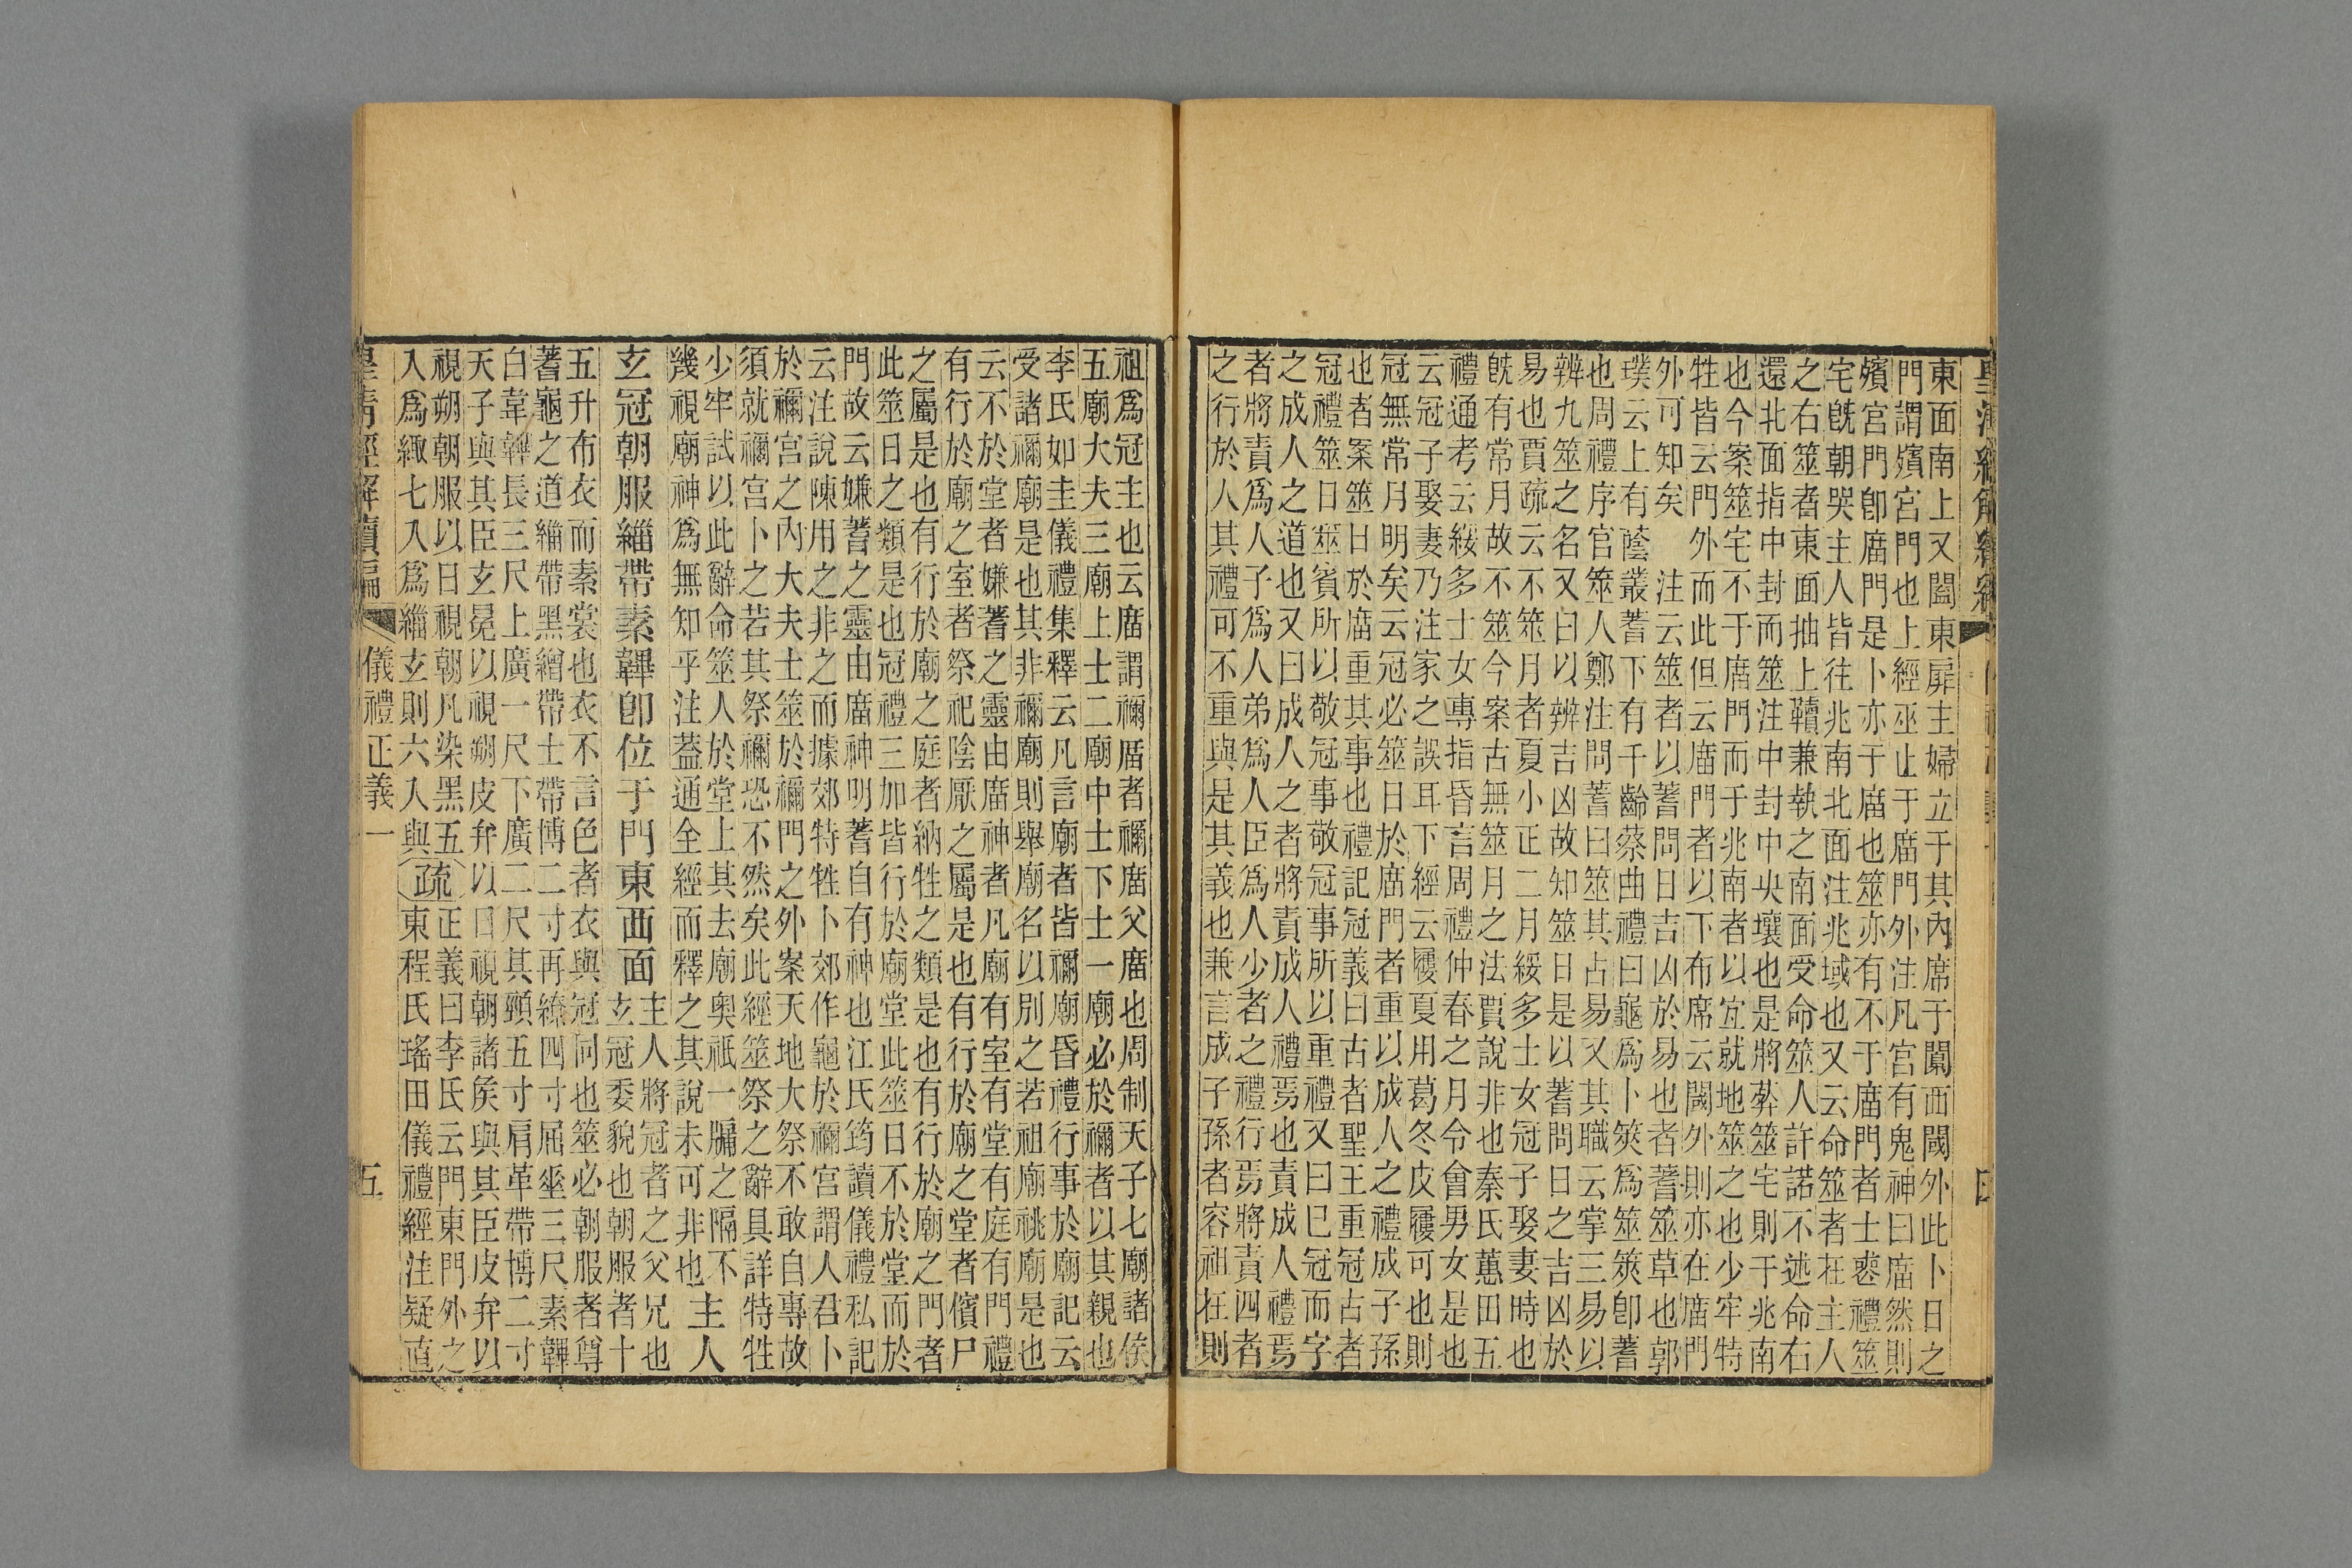 東面南上又闔東扉主婦立于其內席于闑西閾外此卜日之
門謂殯宮門也上經巫止于廟門外注凡宮有鬼神曰廟然則
殯宮門卽廟門是卜亦于廟也筮亦有不于廟門者士喪禮筮
宅旣朝哭主人皆往兆南北面注兆域也又云命筮者在主人
之右筮者東面抽上韇兼執之南面受命筮人許諾不述命右
還北面指中封而筮注中封中央壤也是將葬筮宅則于兆南
也今案筮宅不于廟門而于兆南者以宜就地筮之也少牢特
牲皆云門外而此但云廟門者以下布席云閾外則亦在廟門
外可知矣 注云筮者以蓍問日吉凶於易也者蓍筮草也郭
璞云上有蔭叢蓍下有千齡蔡曲禮曰龜爲卜筴爲筮筴卽蓍
也周禮序官筮人鄭注問蓍曰筮其占易又其職云掌三易以
辨九筮之名又曰以辨吉凶故知筮日是以蓍問日之吉凶於
易也賈疏云不筮月者夏小正二月綏多士女冠子娶妻時也
旣有常月故不筮今案古無筮月之法賈說非也秦氏蕙田五
禮通考云綏多士女專指昏言周禮仲春之月令會男女是也
云冠子娶妻乃注家之誤耳下經云屨夏用葛冬皮屨可也則
冠無常月明矣云冠必筮日於廟門者重以成人之禮成子孫
也者案筮日於廟重其事也禮記冠義曰古者聖王重冠古者
冠禮筮日筮賓所以敬冠事敬冠事所以重禮又曰已冠而字
之成人之道也又曰成人之者將責成人禮焉也責成人禮焉
者將責爲人子爲人弟爲人臣爲人少者之禮行焉將責四者
之行於人其禮可不重與是其義也兼言成子孫者容祖在則
祖爲冠主也云廟謂禰廟者禰廟父廟也周制天子七廟諸侯
五廟大夫三廟上士二廟中士下士一廟必於禰者以其親也
李氏如圭儀禮集釋云凡言廟者皆禰廟昏禮行事於廟記云
受諸禰廟是也其非禰廟則舉廟名以別之若祖廟祧廟是也
云不於堂者嫌蓍之靈由廟神者凡廟有室有堂有庭有門禮
有行於廟之室者祭祀陰厭之屬是也有行於廟之堂者儐尸
之屬是也有行於廟之庭者納牲之類是也有行於廟之門者
此筮日之類是也冠禮三加皆行於廟堂此筮日不於堂而於
門故云嫌蓍之靈由廟神明蓍自有神也江氏筠讀儀禮私記
云注說陳用之非之而據郊特牲卜郊作龜於禰宮謂人君卜
於禰宮之內大夫士筮於禰門之外案天地大祭不敢自專故
須就禰宮卜之若其祭禰恐不然矣此經筮祭之辭具詳特牲
少牢試以此辭命筮人於堂上其去廟奧祇一牖之隔不
幾視廟神爲無知乎注葢通全經而釋之其說未可非也 主人
玄冠朝服緇帶素韠卽位于門東西面 主人將冠者之父兄也
玄冠委貌也朝服者十
五升布衣而素裳也衣不言色者衣與冠同也筮必朝服者尊
蓍龜之道緇帶黑繒帶士帶博二寸再繚四寸屈垂三尺素韠
白韋韠長三尺上廣一尺下廣二尺其頸五寸肩革帶博二寸
天子與其臣玄冕以視朔皮弁以日視朝諸侯與其臣皮弁以
視朔朝服以日視朝凡染黑五入爲緅七入爲緇玄則六入與
疏正義曰李氏云門東門外之東程氏瑤田儀禮經注疑直
皇清經解續編 儀禮正義一 五